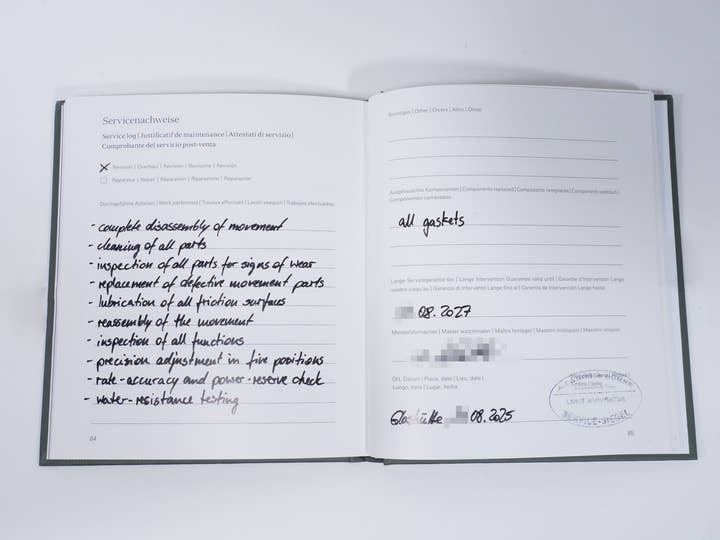 Servicenachweise
Service log | Justificatif de maintenance | Attestati di servizio |
Comprobante del servicio post-venta
Revision | Overhaul | Révision | Revisione | Revisión
Reparatur | Repair | Réparation | Riparazione | Reparación
Durchgeführte Arbeiten | Work performed | Travaux effectués | Lavori eseguiti | Trabajos efectuados
- complete disassembly of movement
- cleaning of all parts
- inspection of all parts for signs of wear
- replacement of defective movement parts
- lubrication of all friction surfaces
- reassembly of the movement
- inspection of all functions
- precision adjustment in five positions
- rate-accuracy and power-reserve check
- water-resistance testing
64
Sonstiges | Other | Divers | Altro | Otros
Ausgetauschte Komponenten | Components replaced | Composants remplacés | Componenti sostituiti |
all gaskets
Lange Servicegarantie bis | Lange Intervention Guarantee valid until | Garantie d'Intervention Lange
08.2027
Meisteruhrmacher | Master watchmaker | Maître horloger | Maestro orologiaio | Maestro relojero
Ort, Datum | Place, date | Lieu, date |
Luogo, data | Lugar, fecha
Glashütte 08.2025
SERVICE-SIEGEL
65